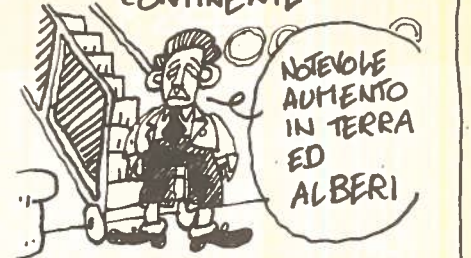 CONTINENTE
NOTEVOLE
AUMENTO
IN TERRA
ED
ALBERI